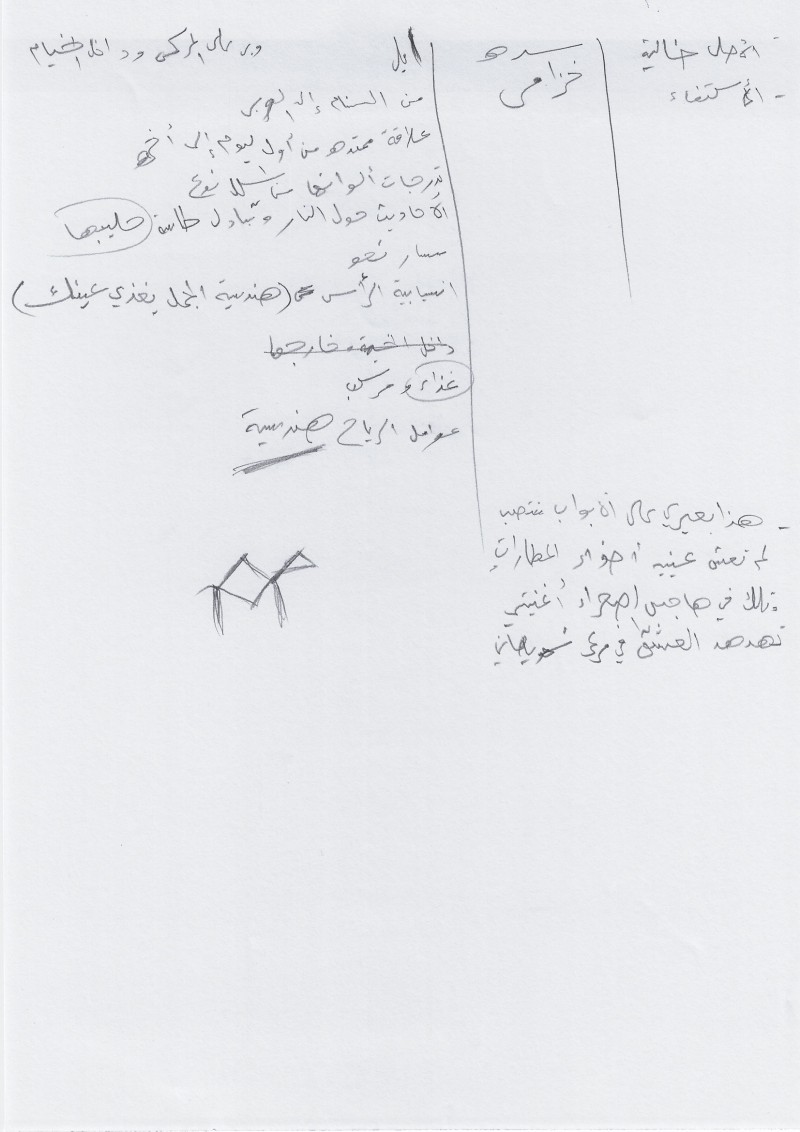 الأصل خالية
- الأستفاء
سدره
خزامى
إبل
وبر على المركى وداخل الخيام
من السنام إلى الوبر
علاقة ممتده من أول يوم إلى أخر
تدرجات ألوانها من اسلا نوع
الأحاديث حول النار وتبادل طاسة حليبها
مسار نحو
انسيابية الرأس (هندسية الجمل يغذي عينك)
داخل الخيمة وخارجها
غذاء ومركب
عوامل الرياح هندسية
- هذا بعيري على الأبواب منتصب
لم تعش عينيه أضواء المطارات
وتلك في هاجس الصحراء أغنيتي
تهدهد العشق في مرعى شويهاتي